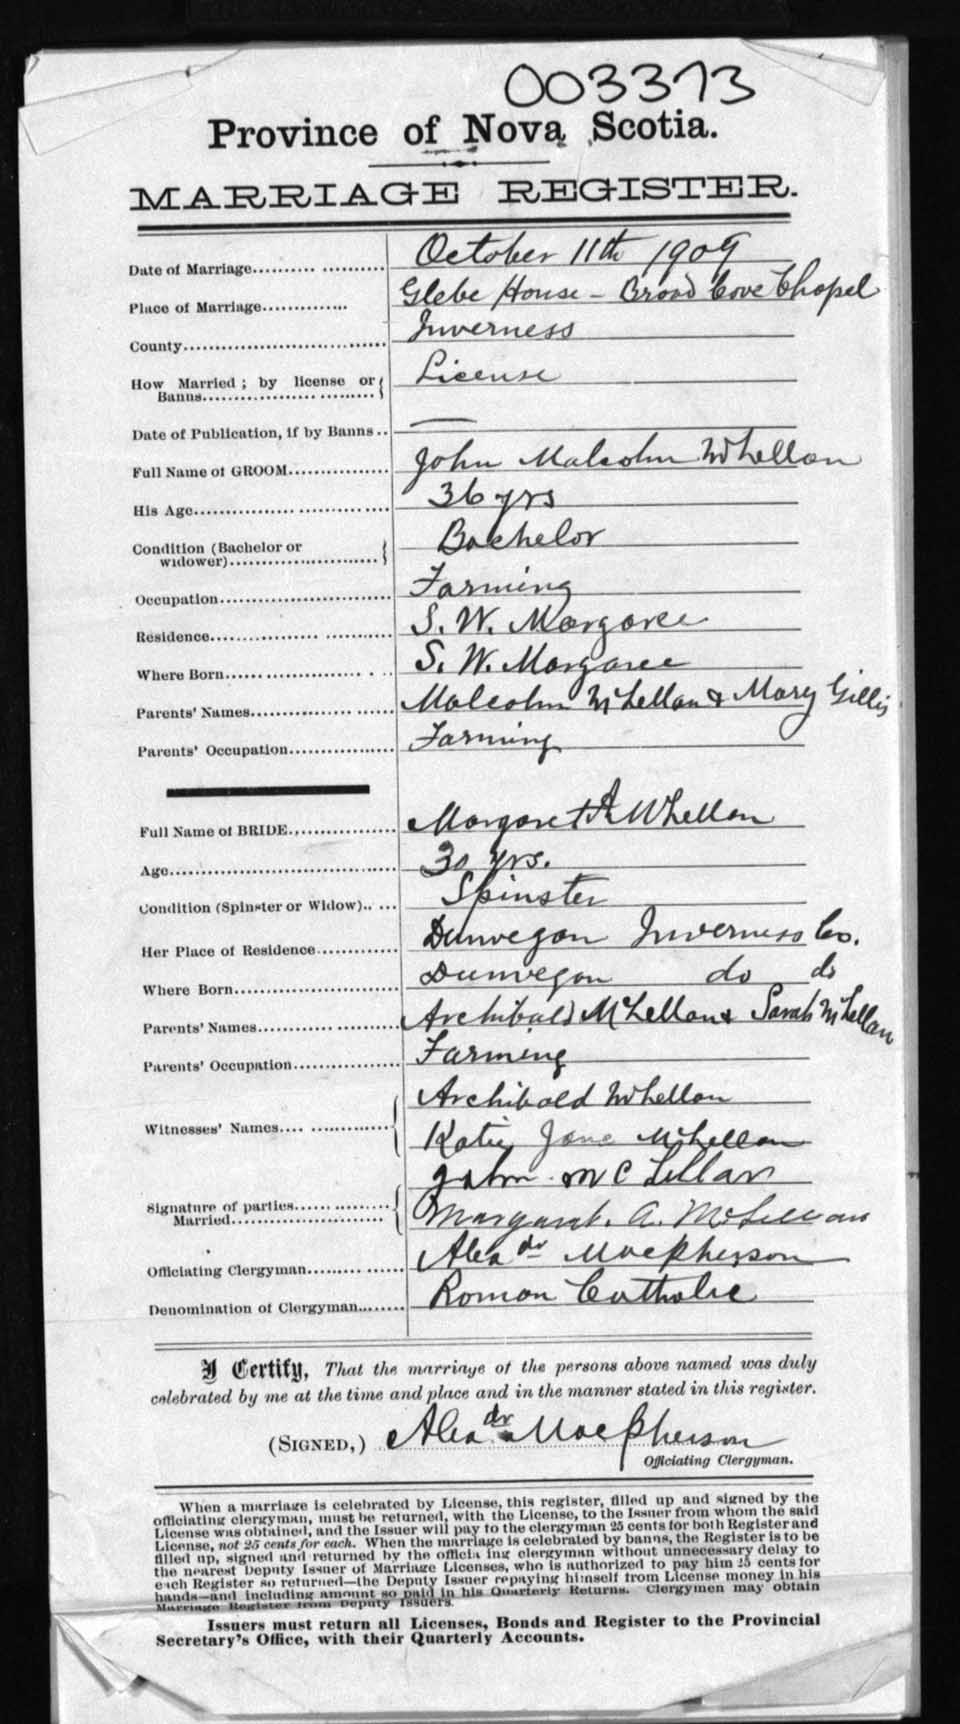 003373
Province of Nova Scotia.
MARRIAGE REGISTER.
Date of Marriage........... October 11th 1909
Place of Marriage............. Glebe House – Broad Cove Chapel
County.............................. Inverness
How Married ; by license or Banns.............................. License
Date of Publication, if by Banns.. —
Full Name of GROOM................ John Malcolm McLellan
His Age.............................. 36 yrs
Condition (Bachelor or widower)....................... Bachelor
Occupation........................... Farming
Residence........................... S. W. Margaree
Where Born........................ S. W. Margaree
Parents' Names..................... Malcolm McLellan & Mary Gillis
Parents' Occupation................ Farming
Full Name of BRIDE................. Margaret A McLellan
Age................................. 30 yrs.
Condition (Spinster or Widow)..... Spinster
Her Place of Residence............ Dunvegan Inverness Co.
Where Born........................ Dunvegan do do
Parents' Names.................... Archibald McLellan & Sarah McLellan
Parents' Occupation................ Farming
Witnesses' Names.... ............. Archibald McLellan
Katie Jane McLellan
Signature of parties Married........................ John McLellan
Margaret. A. McLellan
Officiating Clergyman............... Alexdr MacPherson
Denomination of Clergyman....... Roman Catholic
I Certify, That the marriage of the persons above named was duly
celebrated by me at the time and place and in the manner stated in this register.
(SIGNED,) Alexdr MacPherson
Officiating Clergyman.
When a marriage is celebrated by License, this register, filled up and signed by the
officiating clergyman, must be returned, with the License, to the Issuer from whom the said
License was obtained, and the Issuer will pay to the clergyman 25 cents for both Register and
License, not 25 cents for each. When the marriage is celebrated by banns, the Register is to be
filled up, signed and returned by the officia ing clergyman without unnecessary delay to
the nearest Deputy Issuer of Marriage Licenses, who is authorized to pay him 25 cents for
each Register so returned—the Deputy Issuer repaying himself from License money in his
hands—and including amount so paid in his Quarterly Returns. Clergymen may obtain
Marriage Register from Deputy Issuers.
Issuers must return all Licenses, Bonds and Register to the Provincial
Secretary's Office, with their Quarterly Accounts.